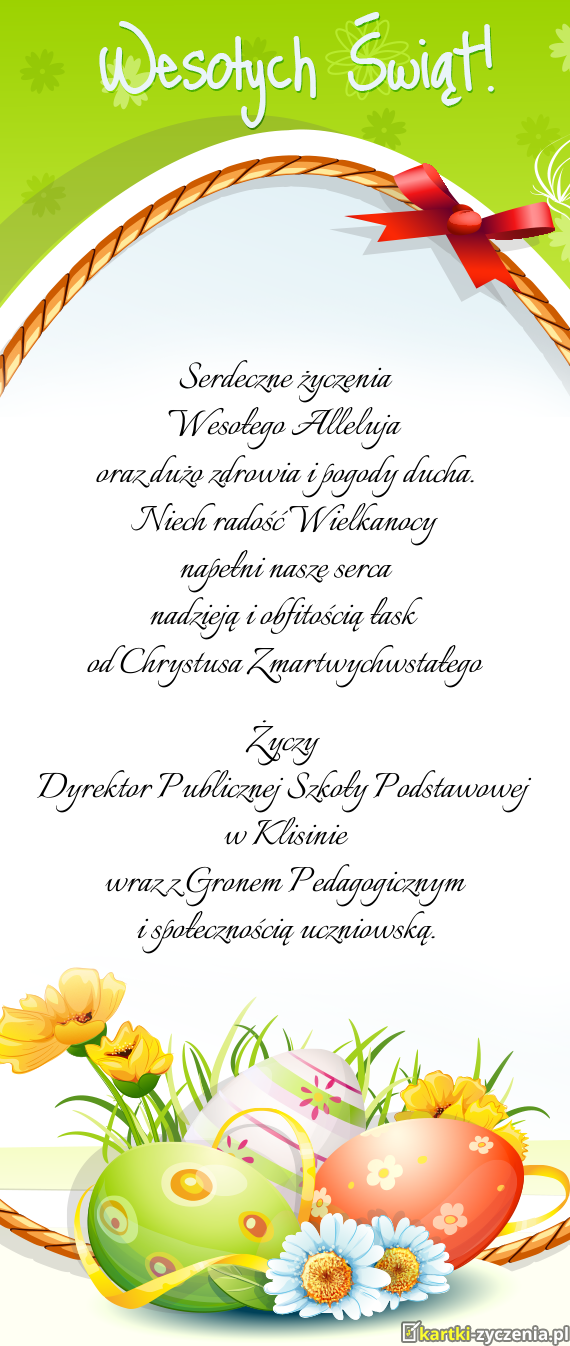 Wesołych Świąt!
Serdeczne życzenia
Wesołego Alleluja
oraz dużo zdrowia i pogody ducha.
Niech radość Wielkanocy
napełni nasze serca
nadzieją i obfitością łask
od Chrystusa Zmartwychwstałego
Życzy
Dyrektor Publicznej Szkoły Podstawowej
w Klisinie
wraz z Gronem Pedagogicznym
i społecznością uczniowską.
kartki-zyczenia.pl